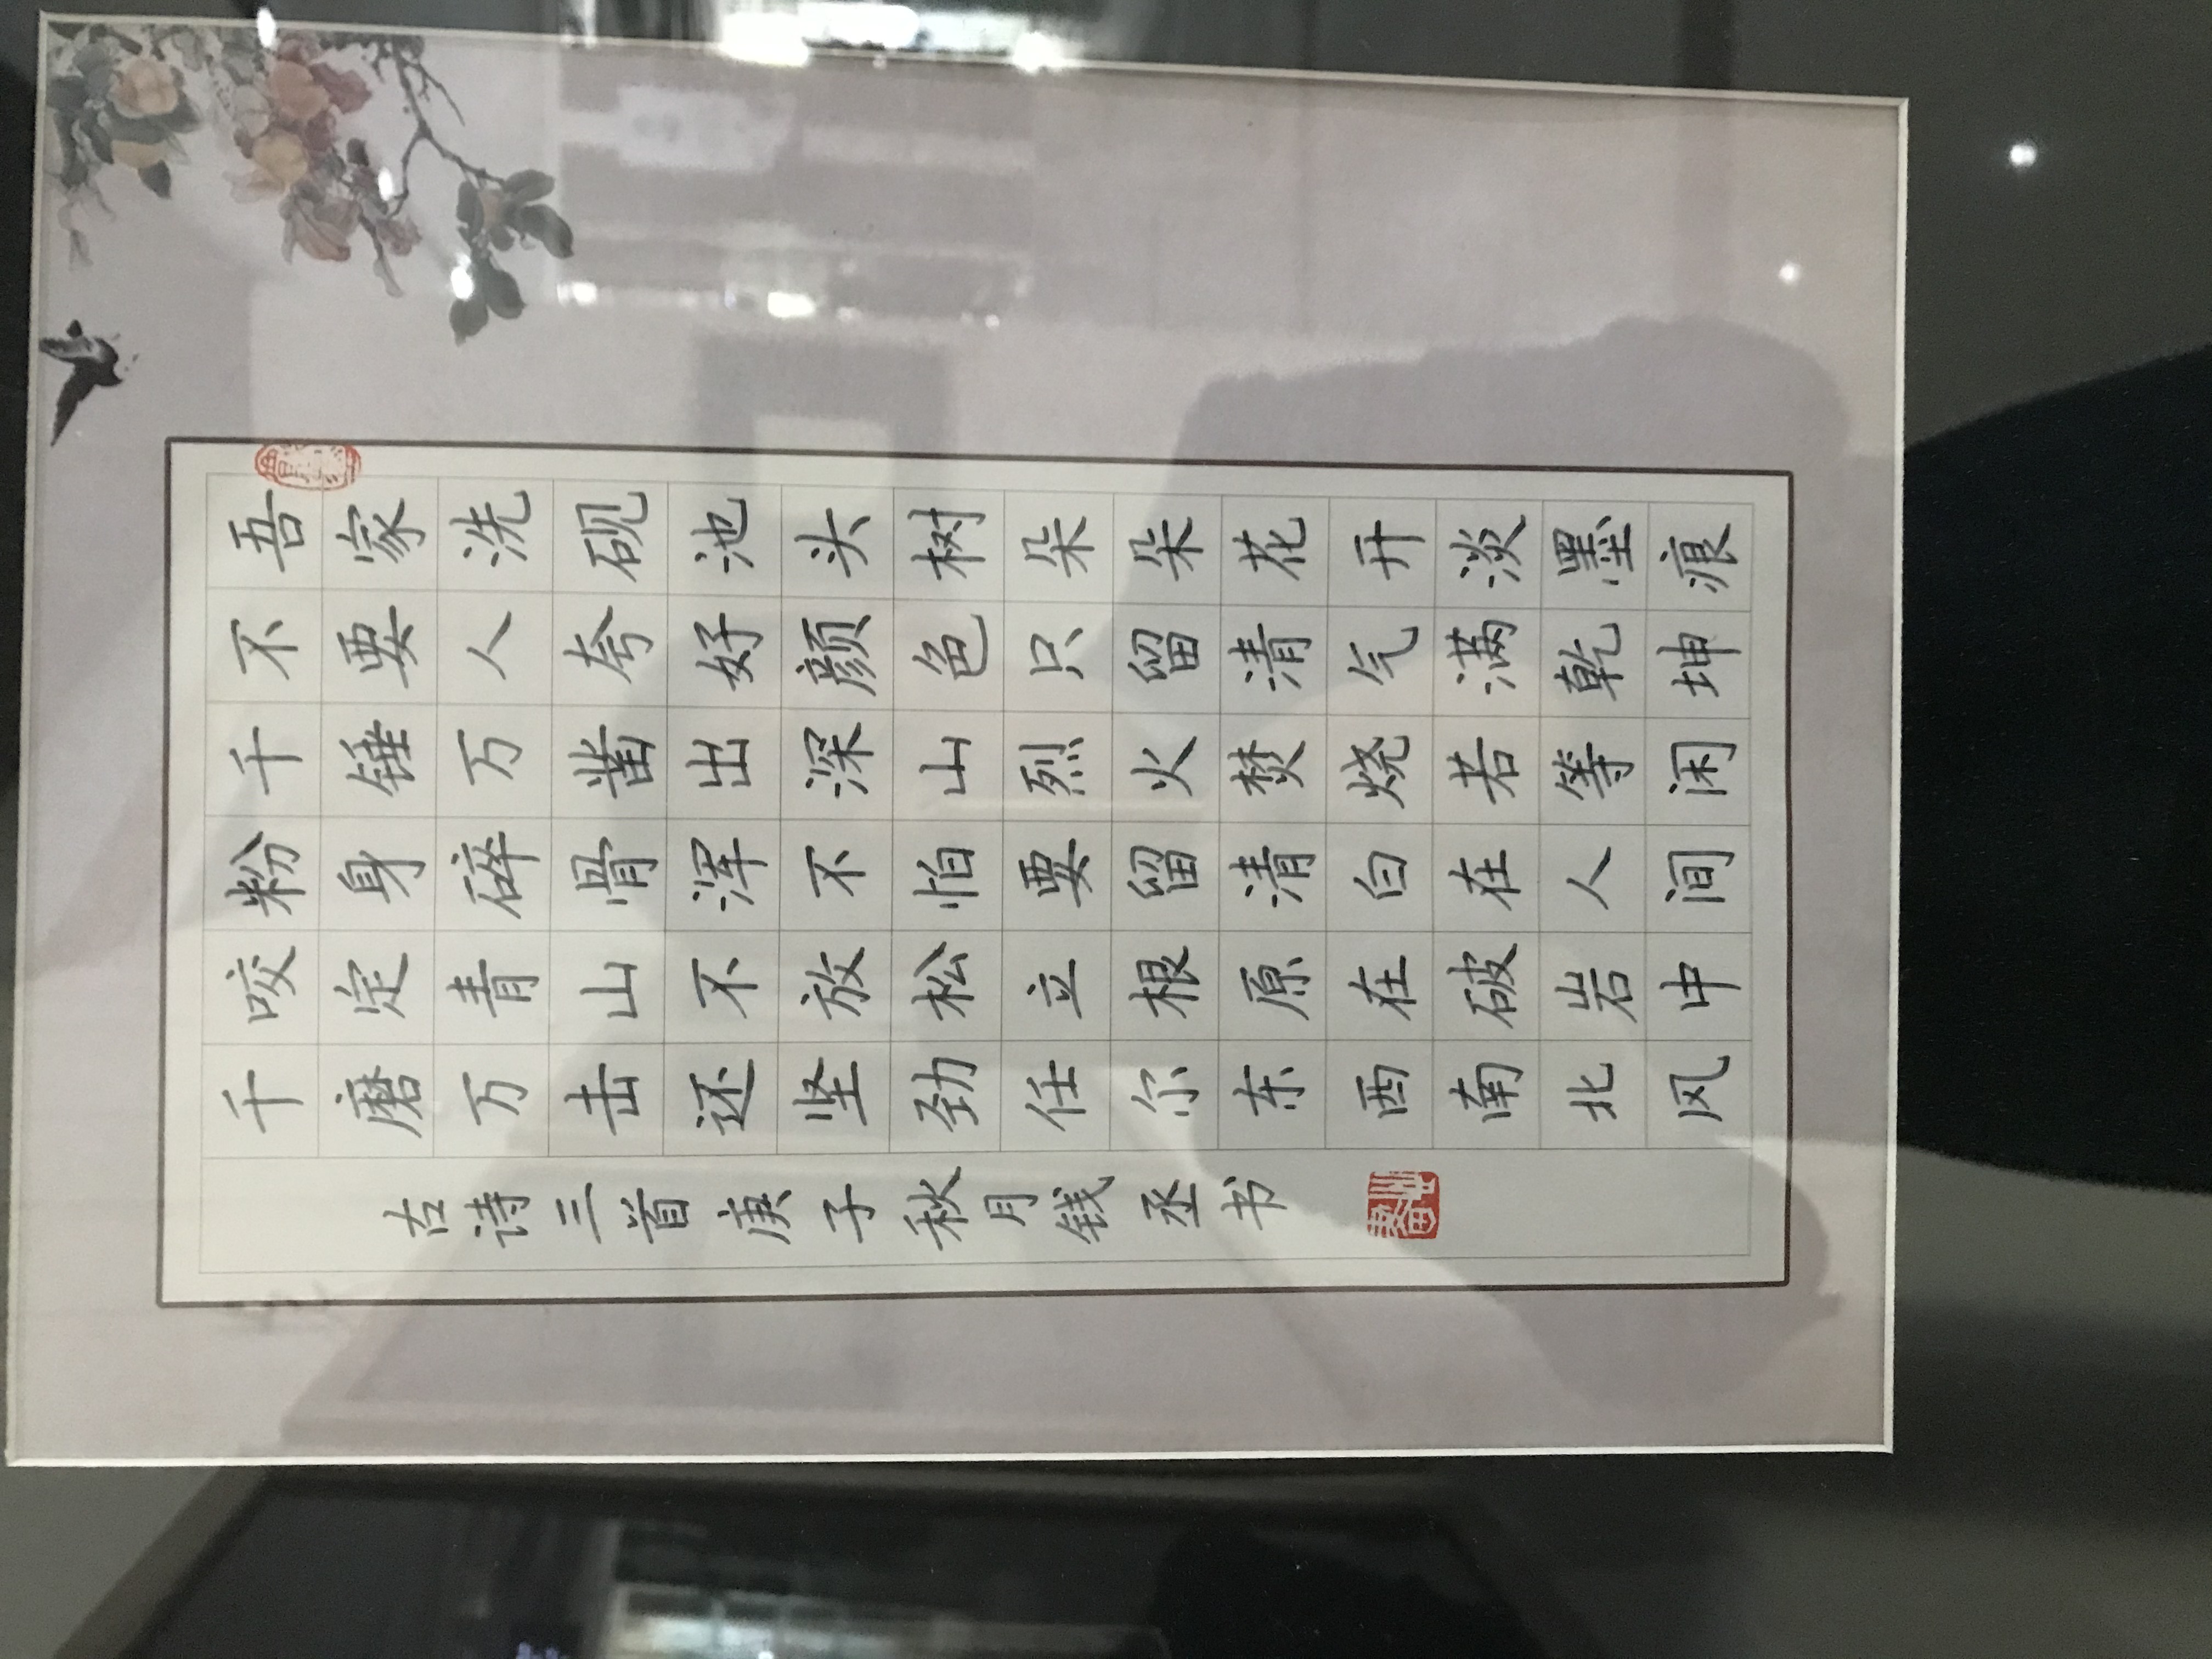 吾家洗砚池头树朵朵花开淡墨痕
不要人夸好颜色只留清气满乾坤
千锤万凿出深山烈火焚烧若等闲
粉身碎骨浑不怕要留清白在人间
咬定青山不放松立根原在破岩中
千磨万击还坚劲任尔东西南北风
古诗三首庚子秋月钱丞书